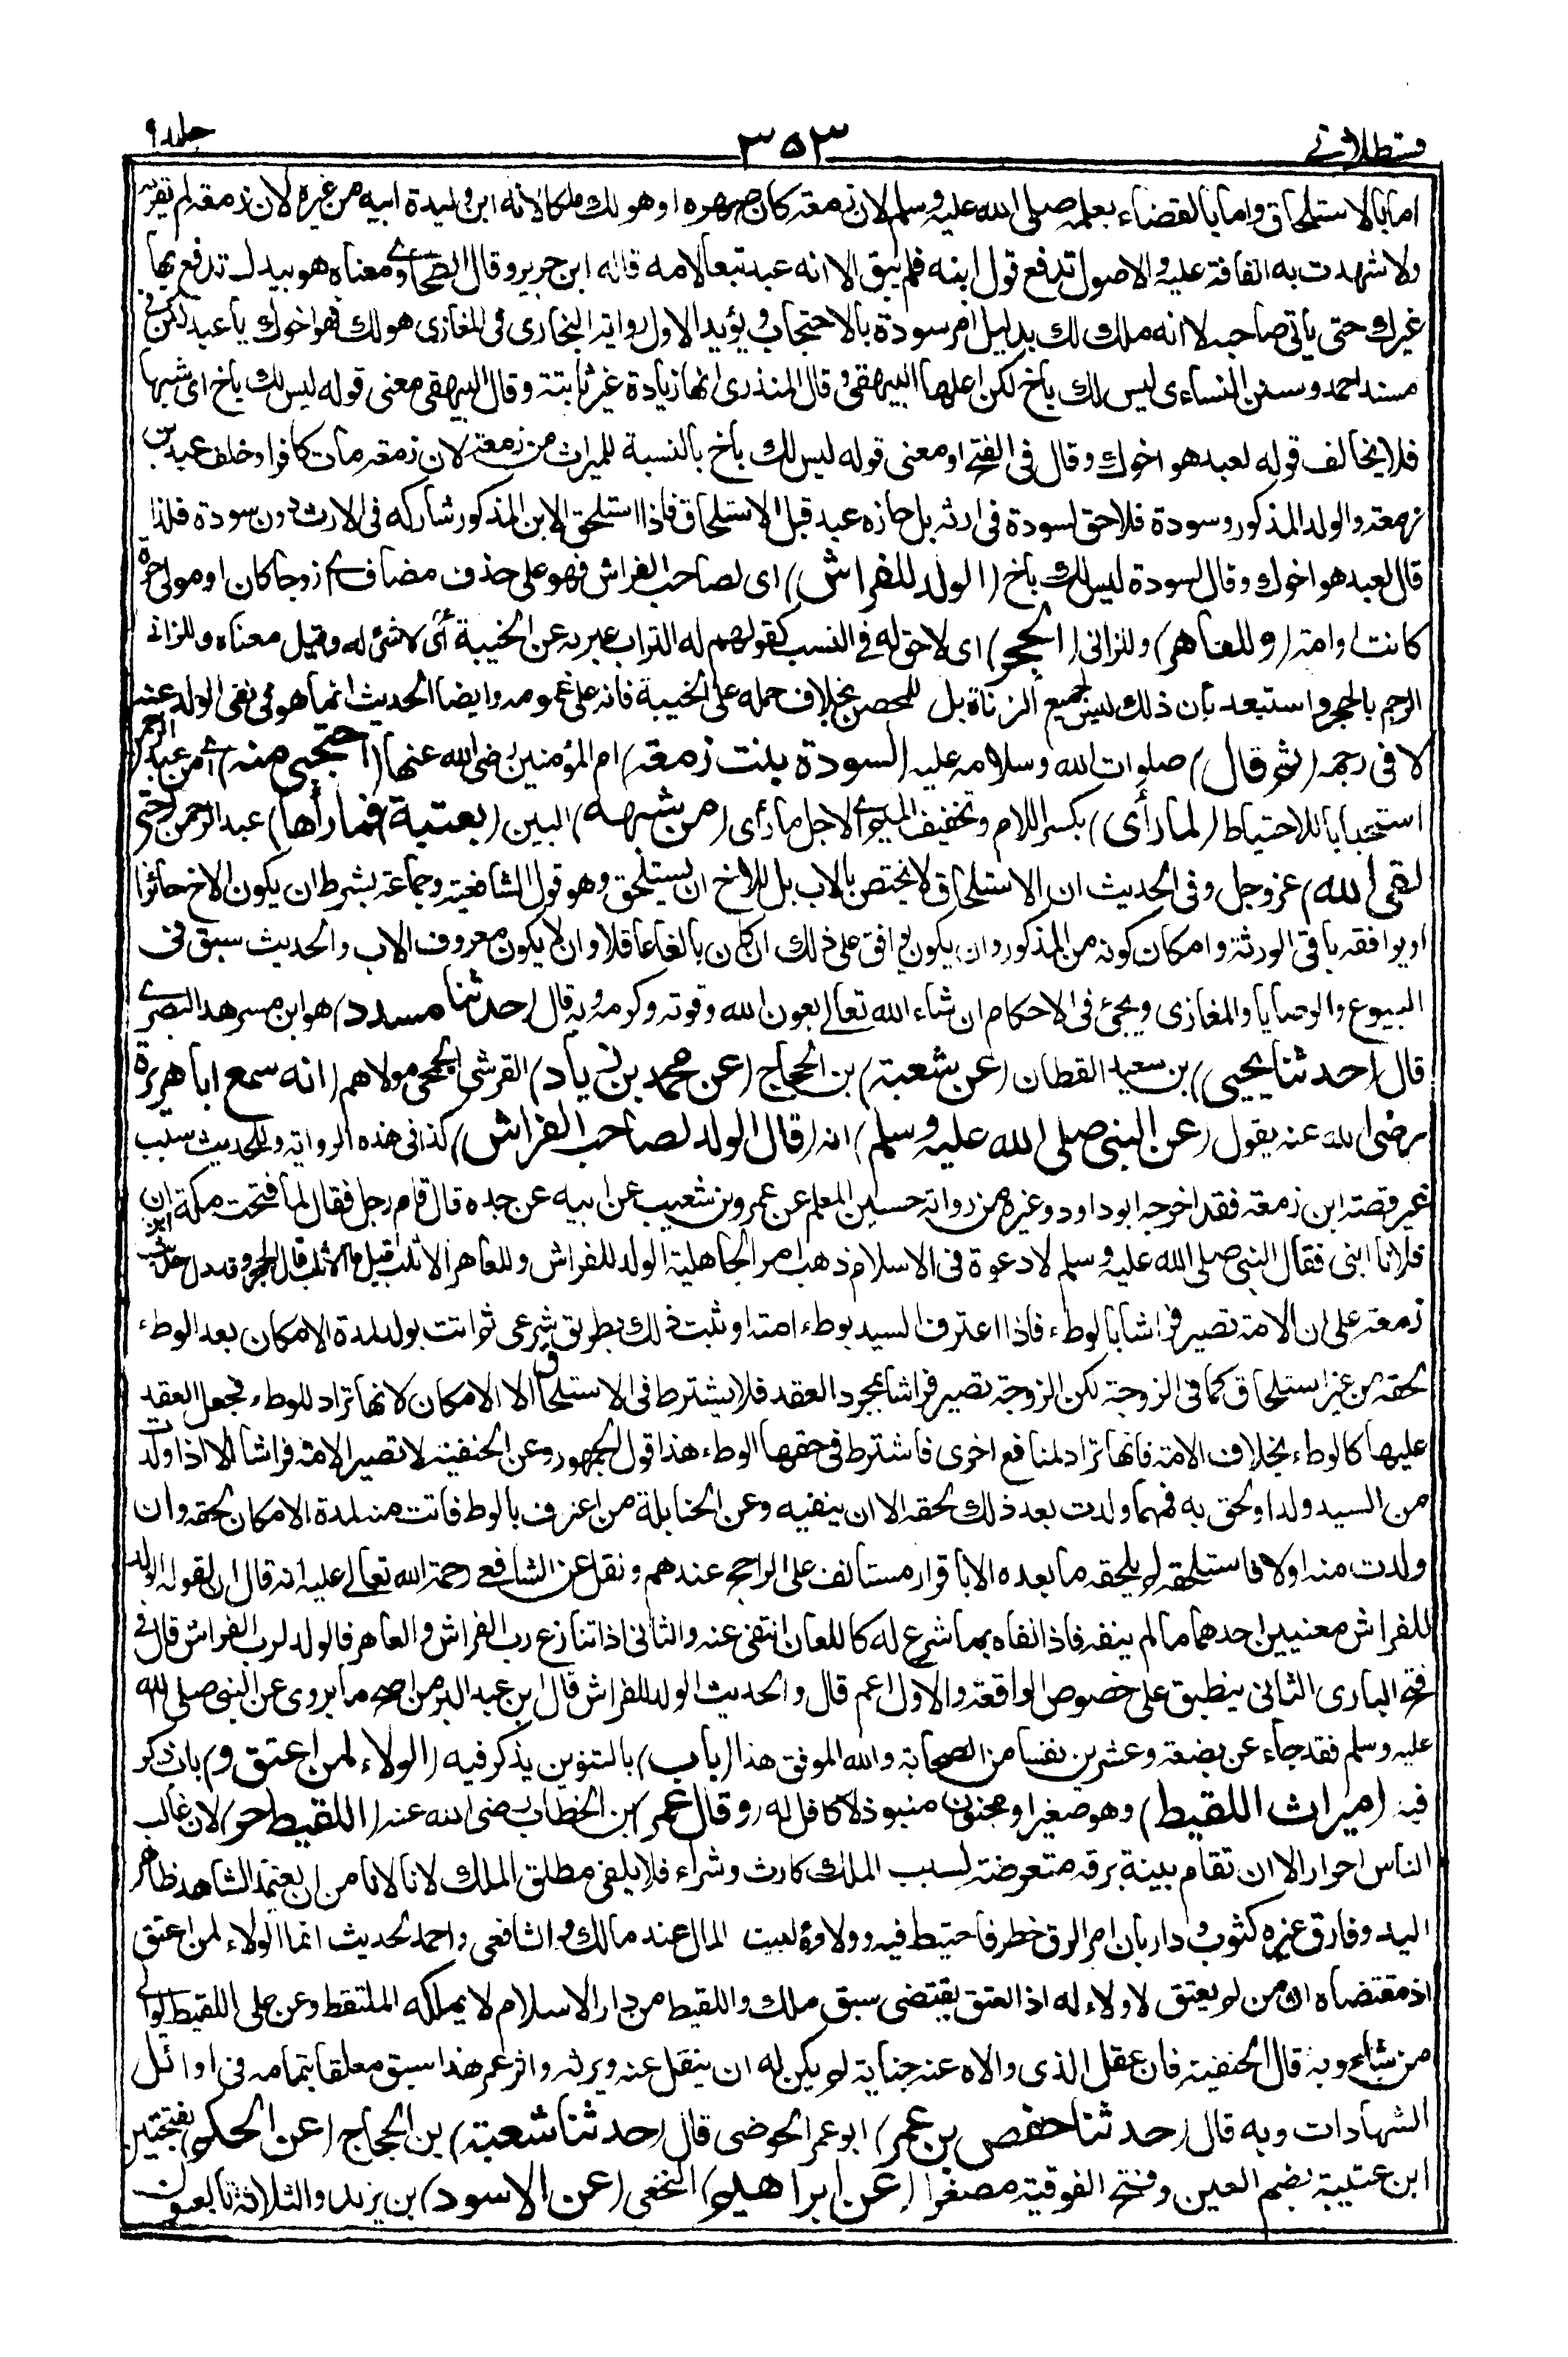 قسطلانے ٣٥٣ جلد ٩
اما بالاستلحاق واما بالقضاء بعلمه صلى الله عليه وسلم لان زمعة كان صهره او هو لك ملكا لانه ابن وليدة ابيه من غيره لان زمعة لم يقر به
ولا شهدت به القافة عليه والاصول تدفع قول ابنه فلم يبق الا انه عبد تبعا لامه قاله ابن جرير وقال الطحاوے معناه هو بيدك تدفع بها
غيرك حتى ياتى صاحبه لا انه ملك لك بدليل امر سودة بالاحتجاب ويؤيد الاول رواية البخارى فى المغازى هو لك فهو اخوك يا عبد لكن فى
مسند احمد وسنن النساءى ليس لك باخ لكن اعلها البيهقى وقال المنذرى انها زيادة غير ثابتة وقال البيهقى معنى قوله ليس لك باخ اى شبها
فلا يخالف قوله لعبد هو اخوك وقال فى الفتح او معنى قوله ليس لك باخ بالنسبة للميراث من زمعة لان زمعة مات كافرا وخلف عبد بن
زمعة والولد المذكور وسودة فلا حق لسودة فى ارثه بل حازه عبد قبل الاستلحاق فاذا استلحق الابن المذكور شاركه فى الارث دون سودة فلذا
قال لعبد هو اخوك وقال لسودة ليس لك باخ (الولد للفراش) اى لصاحب الفراش فهو على حذف مضاف اے زوجا كان او مولى حرة
كانت او امة (وللعاهر) وللزانى (الحجر) اى لا حق له فى النسب كقولهم له التراب عبر به عن الخيبة أى لا شئ له وقيل معناه وللزانے
الرجم بالحجر واستبعد بان ذلك ليس لجميع الزناة بل للمحصن بخلاف حمله على الخيبة فانه على عمومه وايضا الحديث انما هو فى نفى الولد عنه
لا فى رجمه (ثم قال) صلوات الله وسلامه عليه (لسودة بنت زمعة) ام المؤمنين رضى الله عنها (احتجبى منه) اے من عبد الرحمن
استحبابا للاحتياط (لما رأى) بكسر اللام وتخفيف الميم اے لاجل ما رأى (من شبهه) البين (بعتبة فما رأها) عبد الرحمن (حتى
لقى الله) عز وجل وفى الحديث ان الاستلحاق لا يختص بالاب بل للاخ ان يستلحق وهو قول الشافعية وجماعة بشرط ان يكون الاخ حائزا
او يوافقه باقى الورثة وامكان كونه من المذكور وان يكون يوافق على ذلك ان كان بالغا عاقلا وان لا يكون معروف الاب والحديث سبق فى
البيوع والوصايا والمغازى ويجئ فى الاحكام ان شاء الله تعالے بعون الله وقوته وكرمه وبه قال (حدثنا مسدد) هو ابن مسرهد البصرے
قال (حدثنا يحيى) بن سعيد القطان (عن شعبة) بن الحجاج (عن محمد بن زياد) القرشى الجمحى مولاهم (انه سمع ابا هريرة
رضى الله عنه يقول (عن النبى صلى الله عليه وسلم) انه (قال الولد لصاحب الفراش) كذا فى هذه الرواية وللحديث سبب
غير قصة ابن زمعة فقد اخرجه ابو داود وغيره من رواية حسين المعلم عن عمرو بن شعيب عن ابيه عن جده قال قام رجل فقال لما فتحت مكة ان
فلانا ابنى فقال النبى صلى الله عليه وسلم لا دعوة فى الاسلام ذهب امر الجاهلية الولد للفراش وللعاهر الاثلب قيل ما الاثلب قال الحجر وقد دل حديث ابن
زمعة على ان الامة تصير فراشا بالوطء فاذا اعترف السيد بوطء امته او ثبت ذلك بطريق شرعى ثم اتت بولد لمدة الامكان بعد الوطء
لحقه من غير استلحاق كما فى الزوجة لكن الزوجة تصير فراشا بمجرد العقد فلا يشترط فى الاستلحاق الا الامكان لانها تراد للوطء فجعل العقد
عليها كالوطء بخلاف الامة فانها تراد لمنافع اخرى فاشترط فى حقها الوطء هذا قول الجمهور وعن الحنفية لا تصير الامة فراشا الا اذا ولدت
من السيد ولدا ولحق به فمهما ولدت بعد ذلك لحقه الا ان ينفيه وعن الحنابلة من اعترف بالوط فاتت منه لمدة الامكان لحقه وان
ولدت منه اولا فاستلحقه لم يلحقه ما بعده الا باقرار مستانف على الراجح عندهم ونقل عن الشافعے رحمة الله تعالے عليه انه قال ان لقوله الولد
للفراش معنيين احدهما ما لم ينفه فاذا نفاه بما شرع له كاللعان انتفى عنه والثانى اذا تنازع رب الفراش والعاهر فالولد لرب الفراش قال فى
فتح البارى الثانى ينطبق على خصوص الواقعة والاول اعم قال والحديث الولد للفراش قال ابن عبد البر من اصح ما يروى عن النبى صلى الله
عليه وسلم فقد جاء عن بضعة وعشرين نفسا من الصحابة والله الموفق هذا (باب) بالتنوين يذكر فيه (الولاء لمن اعتق و) باب ذكر
فيه (ميراث اللقيط) وهو صغير او مجنون منبوذ لا كافل له (وقال عمر) بن الخطاب رضى الله عنه (اللقيط حر) لان غالب
الناس احرار الا ان تقام بينة برقه متعرضة لسبب الملك كارث وشراء فلا يلفى مطلق الملك لانا لا نامن ان يعتمد الشاهد ظاهر
اليد وفارق غيره كثوب ودار بان امر الرق خطر فاحتيط فيه وولاؤه لبيت المال عند مالك والشافعى واحمد لحديث انما الولاء لمن اعتق
اذ مقتضاه ان من لم يعتق لا ولاء له اذ العتق يقتضى سبق ملك واللقيط من دار الاسلام لا يملكه الملتقط وعن على اللقيط يوالے
من شاء وبه قال الحنفية فان عقل الذى والاه عنه جناية لم يكن له ان ينقل عنه ويرثه واثر عمر هذا سبق معلقا بتمامه فى اوائل
الشهادات وبه قال (حدثنا حفص بن عمر) ابو عمر الحوضى قال (حدثنا شعبة) بن الحجاج (عن الحكم) بفتحتين
ابن عتيبة بضم العين وفتح الفوقية مصغرا (عن ابراهيم) النخعى (عن الاسود) بن يزيد والثلاثة تابعون